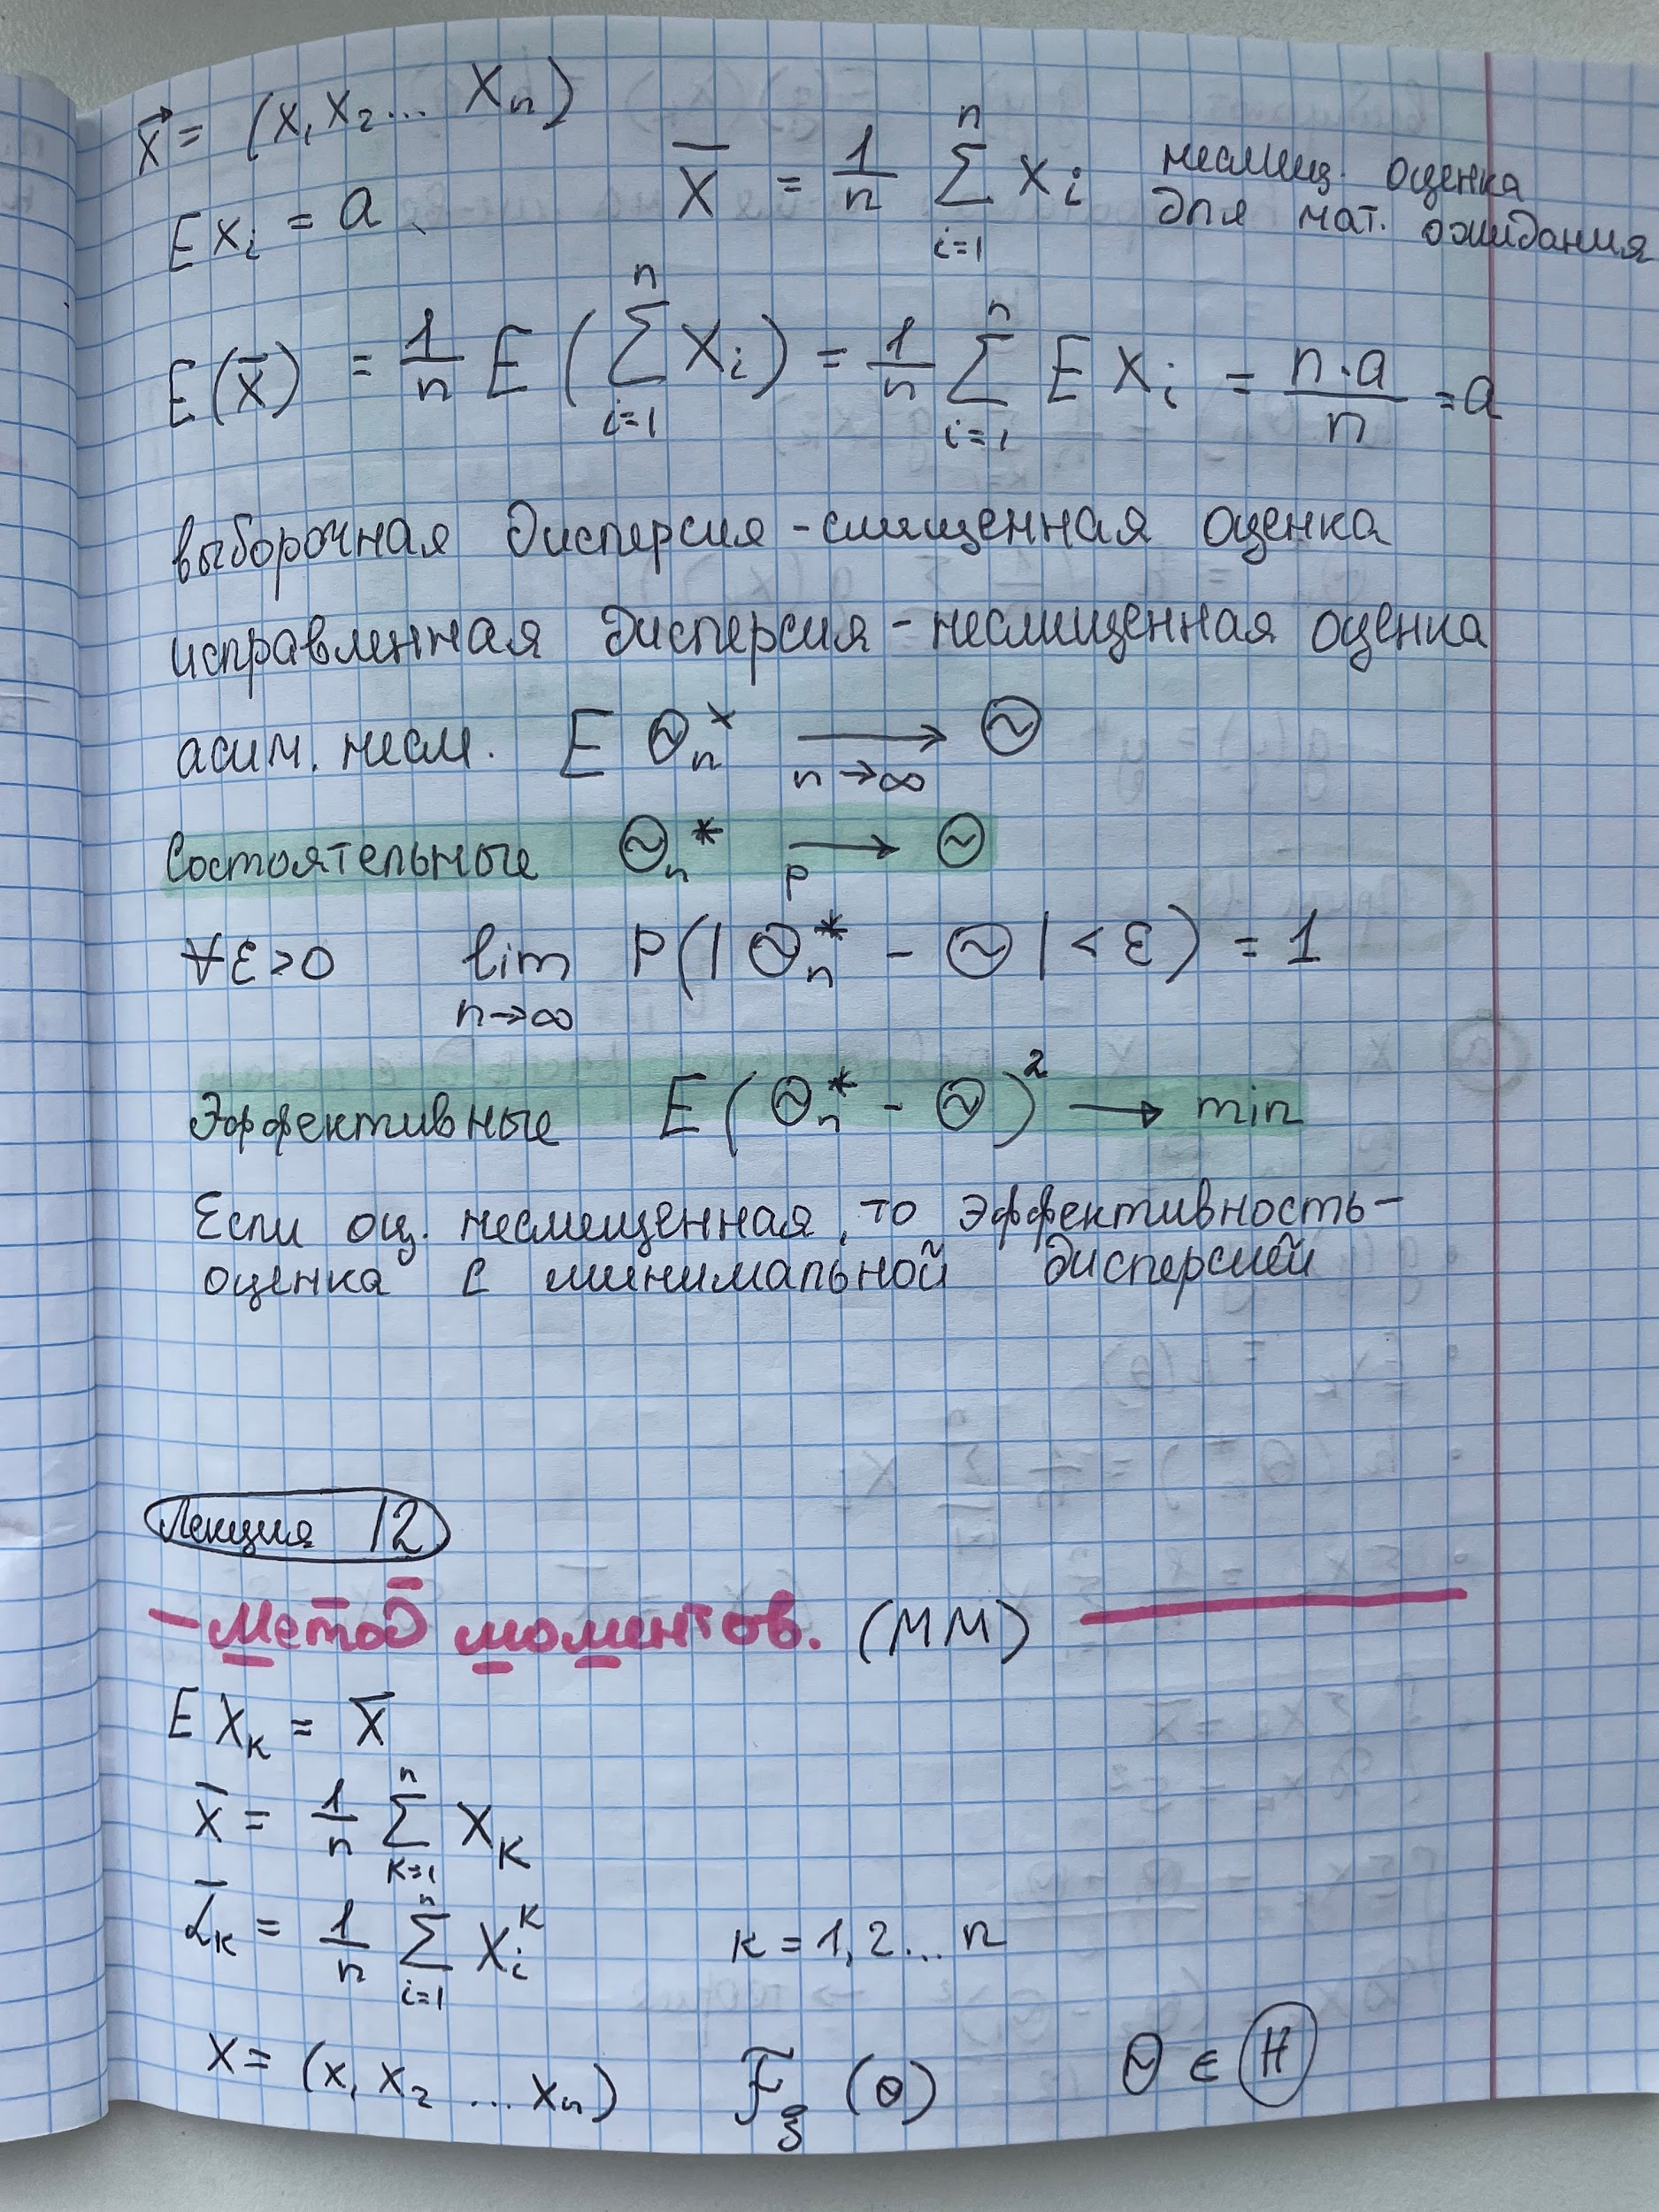 x⃗ = (x₁ x₂ ... xₙ)
E xᵢ = a
x̅ = 1/n ∑ᵢ₌₁ⁿ xᵢ несмещ. оценка
для мат. ожидания
E(x̅) = 1/n E (∑ᵢ₌₁ⁿ xᵢ) = 1/n ∑ᵢ₌₁ⁿ E xᵢ = n·a/n = a
выборочная дисперсия - смещенная оценка
исправленная дисперсия - несмещенная оценка
асим. несм. E Θₙ* ⟶ Θ
n→∞
Состоятельные Θₙ* ⟶ Θ
p
∀ε>0 lim P(|Θₙ* - Θ| < ε) = 1
n→∞
Эффективные E(Θₙ* - Θ)² ⟶ min
Если оц. несмещенная, то эффективность -
оценка с минимальной дисперсией
Лекция 12
- Метод моментов. (ММ)
E Xₖ = x̅
x̅ = 1/n ∑ₖ₌₁ⁿ Xₖ
α̅ₖ = 1/n ∑ᵢ₌₁ⁿ Xᵢᵏ к = 1, 2 ... n
X = (x₁ x₂ ... xₙ) F_ξ (θ) Θ ∈ Ⓗ